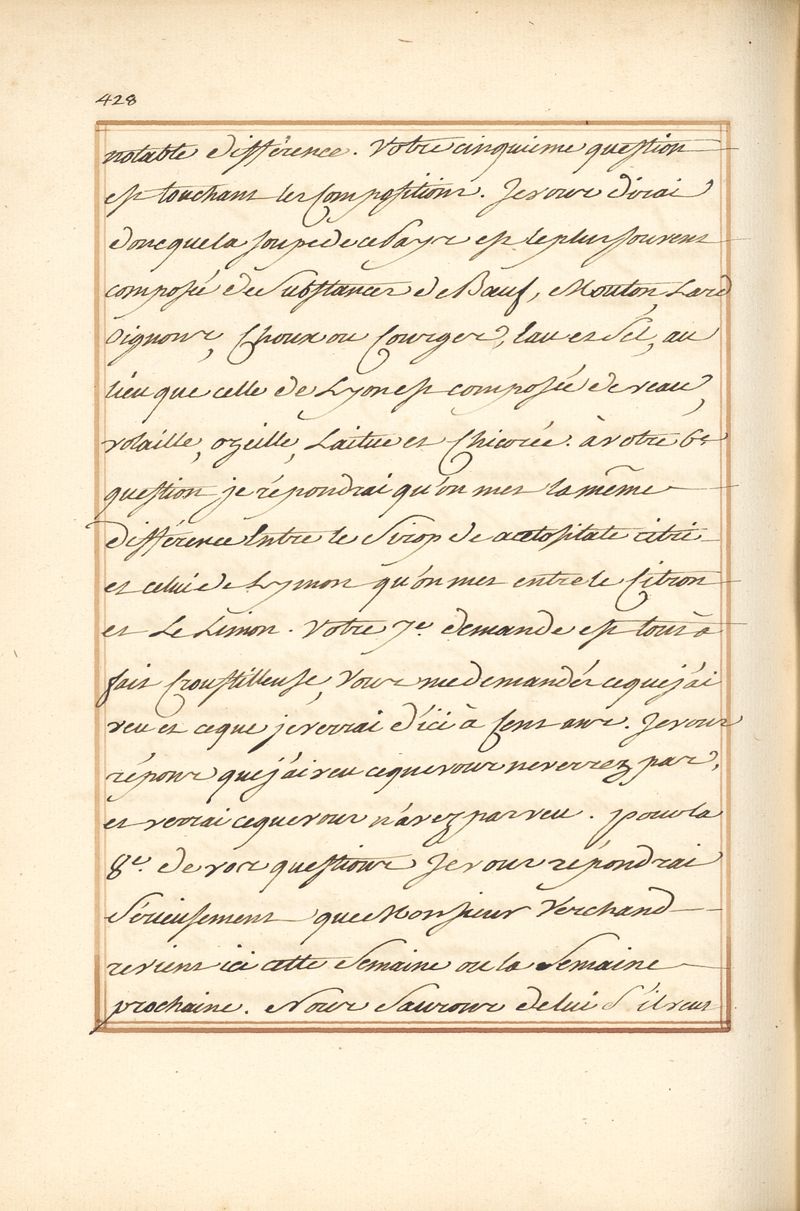 428
notable différence. Votre cinquieme question
est touchant les Compositions. Je vous dirai
donc que la soupe de ce Pays est le plus souvent
composée de Substances de Bœuf, Mouton, Lard
Oignons, Choux ou Courges, Eau et Sel, au
lieu que celle de Lyon est composée de veau,
volaille, ozeille, Laitue et Chicorée. à votre 6e
question je répondrai qu'on met la même
différence Entre le Sirop de acetositate citri
et celui de Lymon qu'on met entre le Citron
et Le Limon. Votre 7e. demande est tout à
fait Croustilleuse, Vous me demandés ce que j'ai
veu et ce que je verrai d'ici à Cent ans. Je vous
répons que j'ai veu ce que vous ne verrez pas,
et verrai ce que vous n'avez pas veu. pour la
8e. de vos questions Je vous répondrai
Sérieusement que Monsieur Verchand
revient ici cette Semaine ou la Semaine
prochaine. Nous Saurons de lui S'il veut